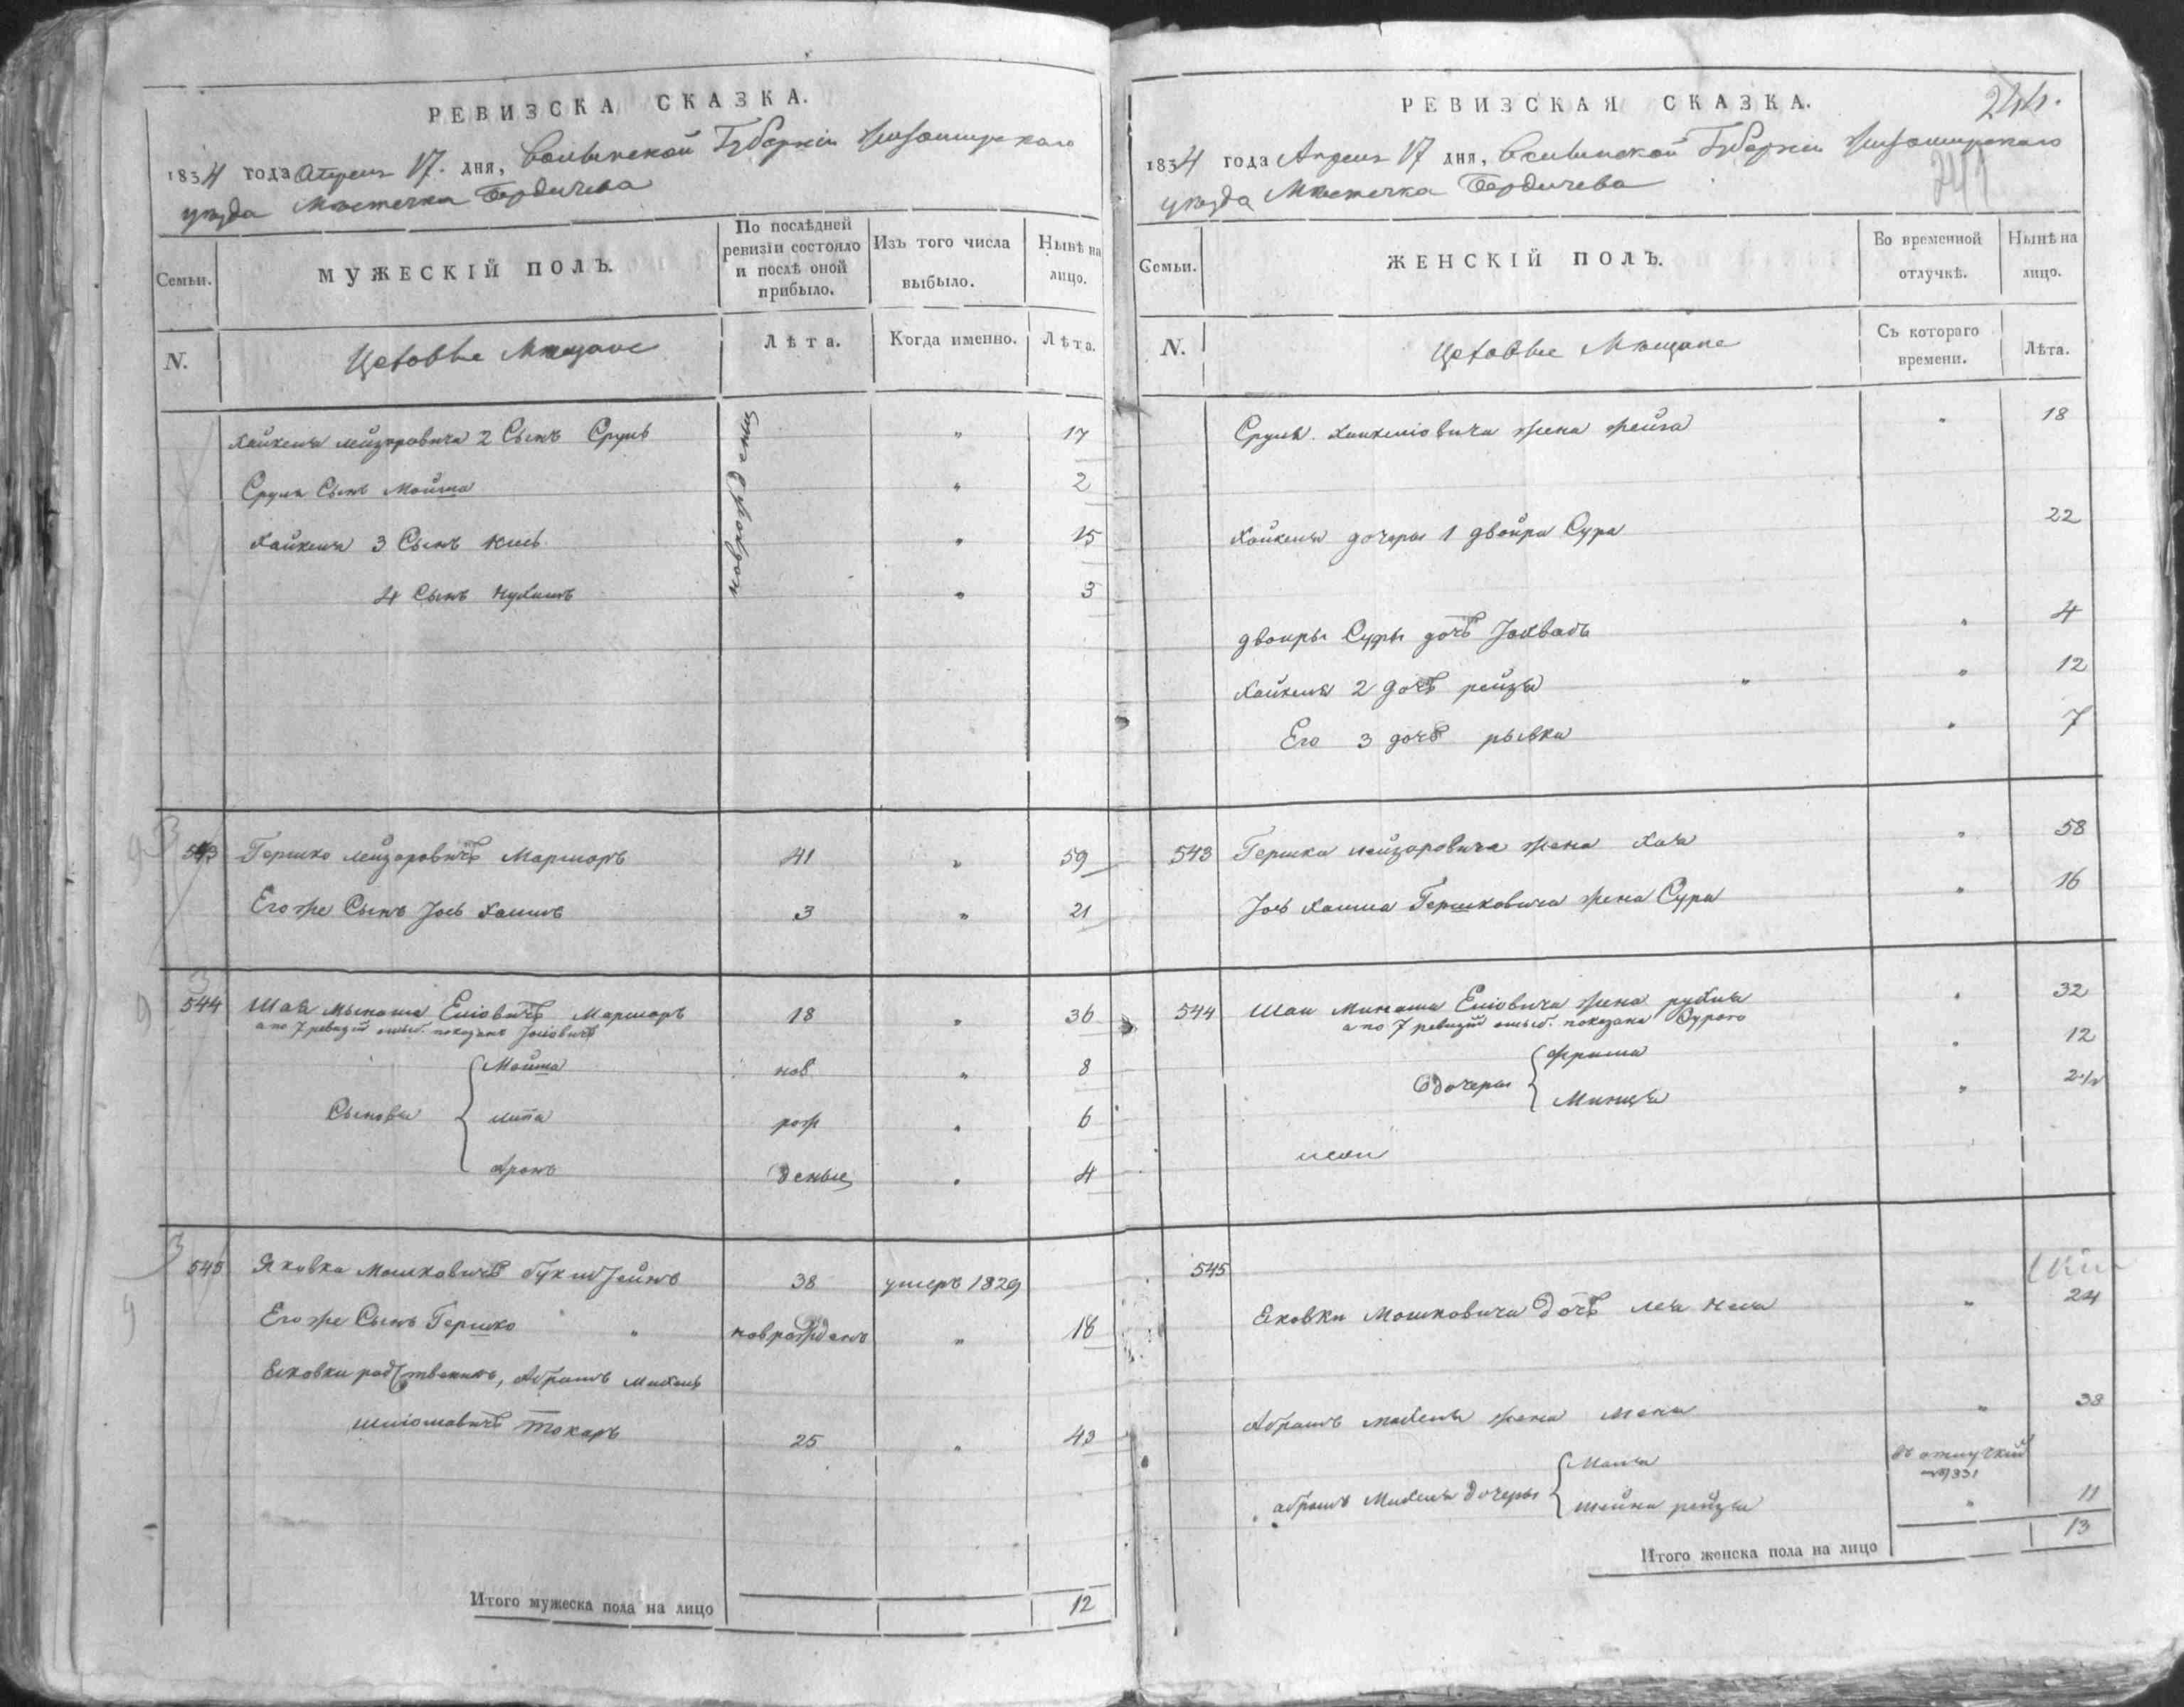 РЕВИЗСКА СКАЗКА.
1834 года Апреля 17 дня, Волынской Губерніи Житомирскаго
уезда Местечка Бердичева
Семьи.
МУЖЕСКІЙ ПОЛЪ.
По послѣдней ревизіи состояло и послѣ оной прибыло.
Изъ того числа выбыло.
Нынѣ на лицо.
N.
Цеховые Мещане
Лѣта.
Когда именно.
Лѣта.
Хайкеля лейзоровича 2 Сынъ Сруль " 17
Сруля Сынъ Мойша " 2
Хайкеля 3 Сынъ " 15
4 Сынъ Нухимъ " 3
новорожденные
543 Гершко лейзоровичъ 41 " 59
Его же Сынъ Іось Хаимъ 3 " 21
544 Шая Еліовичъ 18 " 36
а по 7 ревизіи ошиб. показанъ
Сыновья
Мойша нов " 8
липа рож " 6
Аронъ денные " 4
545 Яковка Мошковичъ 38 умеръ 1829
Его же Сынъ Гершко " новорожденъ " 18
родственникъ, Абрамъ Михель
шліомовичъ Токаръ 25 " 43
Итого мужеска пола на лицо 12
РЕВИЗСКАЯ СКАЗКА.
244.
1834 года Апреля 17 дня, Волынской Губерніи Житомирскаго
уезда Местечка Бердичева
Семьи.
ЖЕНСКІЙ ПОЛЪ.
Во временной отлучкѣ.
Нынѣ на лицо.
N.
Цеховые Мещане
Съ котораго времени.
Лѣта.
Сруля Хайкеліовича жена фейга " 18
Хайкеля дочеры 1 двойра Сура 22
двойры Суры дочь " 4
Хайкеля 2 дочь рейзя " " 12
Его 3 дочь рывка " 7
543 Гершка лейзоровича жена Хая " 58
Іось Хаима Гершковича жена Сура " 16
544 Шаи Еліовича жена рухля " 32
а по 7 ревизіи ошиб. показана Сурого
дочеры
фрима " 12
Минця "
545
Мошковича дочь лея " 24
Абрамъ Михеля жена " 38
абрамъ Михеля дочеры
въ отлучкѣ
шейна рейзя " 11
Итого женска пола на лицо 13